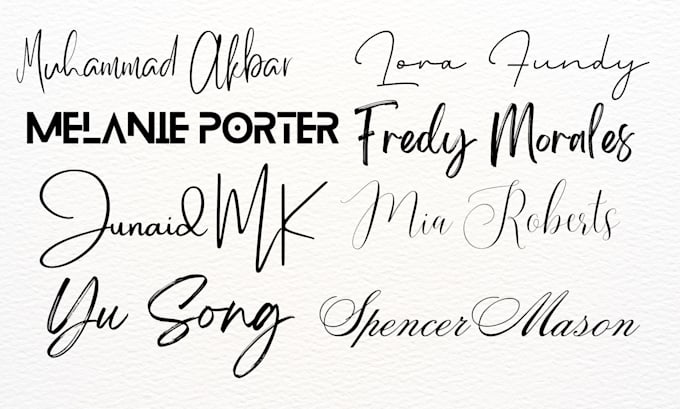 Muhammad Akbar
Lora Fundy
MELANIE PORTER
Fredy Morales
Junaid MK
Mia Roberts
Yu Song
Spencer Mason